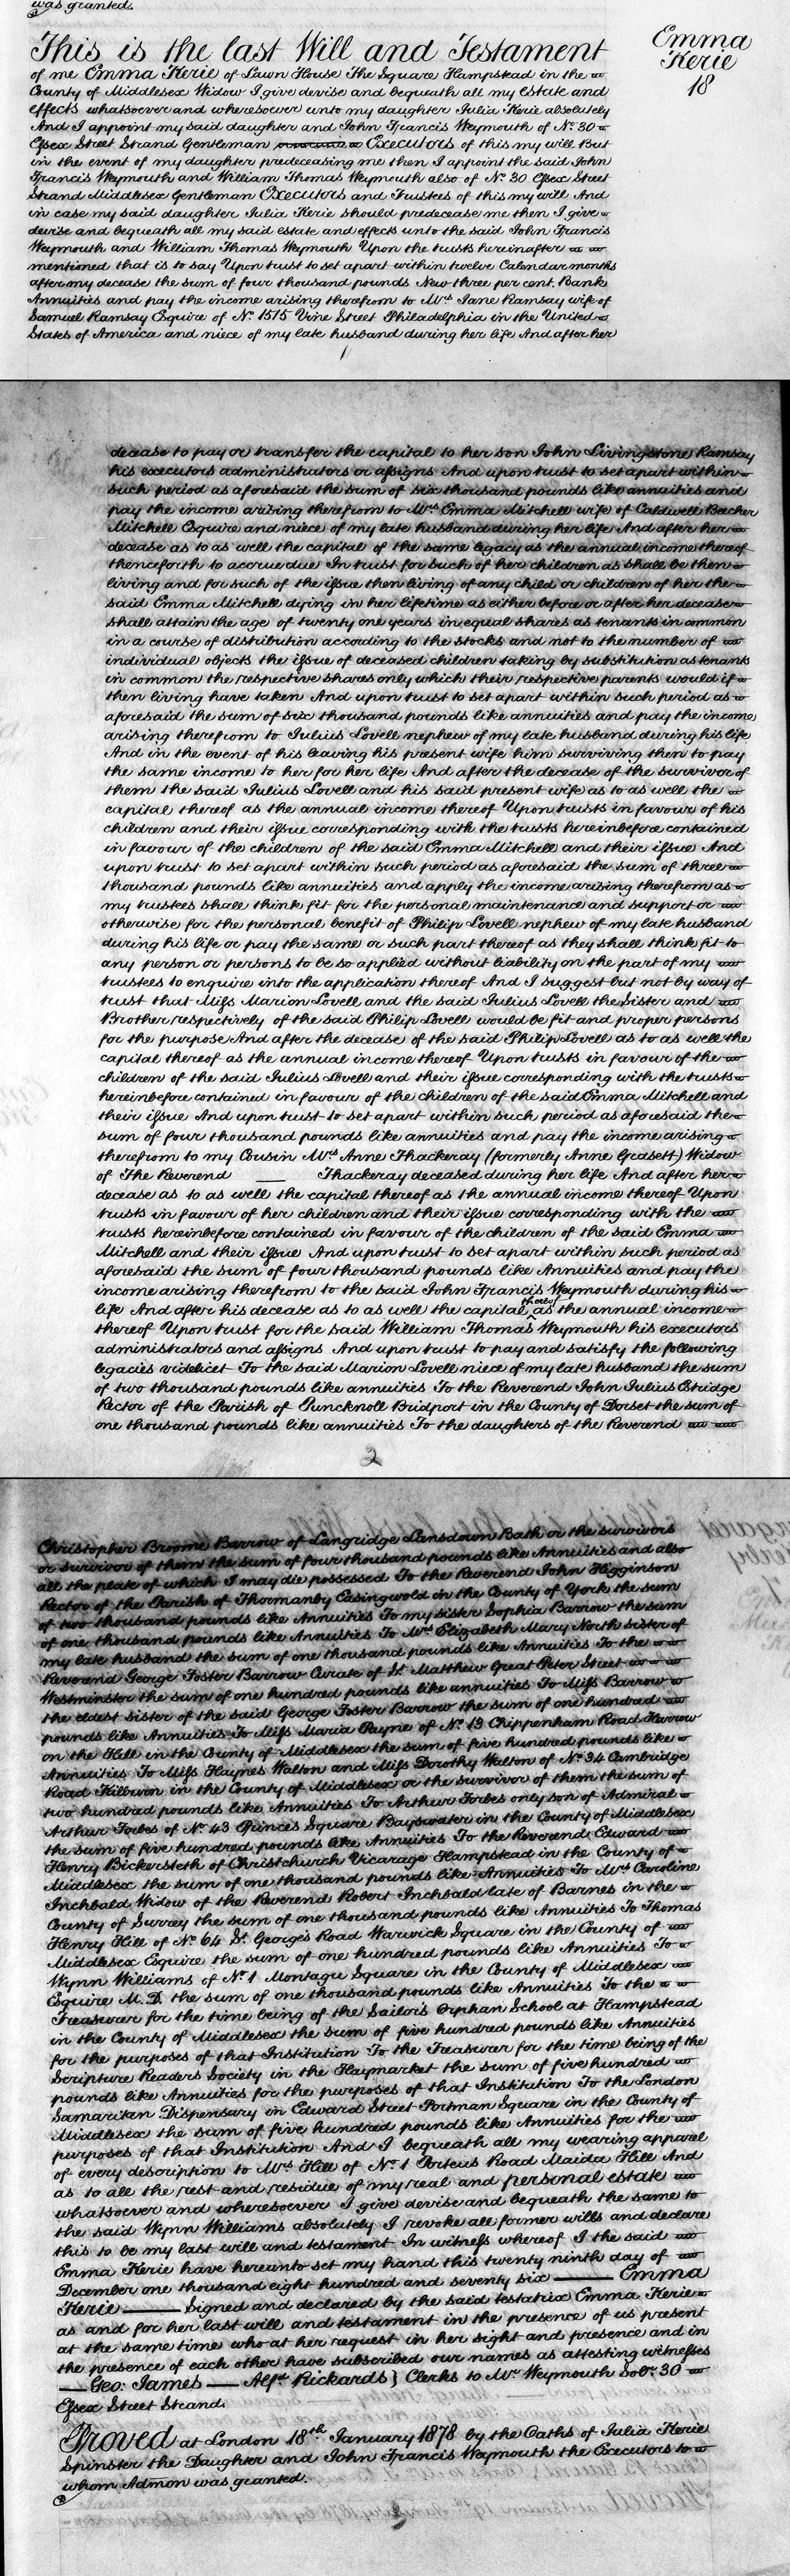 was granted.
This is the last Will and Testament
Emma
Kerie
18
of me Emma Kerie of Lawn House The Square Hampstead in the
County of Middlesex Widow I give devise and bequeath all my estate and
effects whatsoever and wheresoever unto my daughter Julia Kerie absolutely
And I appoint my said daughter and John Francis Weymouth of No. 30
Essex Street Strand Gentleman Executors of this my will But
in the event of my daughter predeceasing me then I appoint the said John
Francis Weymouth and William Thomas Weymouth also of No. 30 Essex Street
Strand Middlesex Gentleman Executors and Trustees of this my will And
in case my said daughter Julia Kerie should predecease me then I give
devise and bequeath all my said estate and effects unto the said John Francis
Weymouth and William Thomas Weymouth Upon the trusts hereinafter
mentioned that is to say Upon trust to set apart within twelve Calendar months
after my decease the sum of four thousand pounds New three per cent. Bank
Annuities and pay the income arising therefrom to Mrs. Jane Ramsay wife of
Samuel Ramsay Esquire of No. 1515 Vine Street Philadelphia in the United
States of America and niece of my late husband during her life And after her
1
decease to pay or transfer the capital to her son John Livingstone Ramsay
his executors administrators or assigns And upon trust to set apart within
such period as aforesaid the sum of six thousand pounds like annuities and
pay the income arising therefrom to Mrs. Emma Mitchell wife of Caldwell Becher
Mitchell Esquire and niece of my late husband during her life And after her
decease as to as well the capital of the same legacy as the annual income thereof
thenceforth to accrue due In trust for such of her children as shall be then
living and for such of the issue then living of any child or children of her the
said Emma Mitchell dying in her lifetime as either before or after her decease
shall attain the age of twenty one years in equal shares as tenants in common
in a course of distribution according to the stocks and not to the number of
individual objects the issue of deceased children taking by substitution as tenants
in common the respective shares only which their respective parents would if
then living have taken And upon trust to set apart within such period as
aforesaid the sum of six thousand pounds like annuities and pay the income
arising therefrom to Julius Lovell nephew of my late husband during his life
And in the event of his leaving his present wife him surviving then to pay
the same income to her for her life And after the decease of the survivor of
them the said Julius Lovell and his said present wife as to as well the
capital thereof as the annual income thereof Upon trusts in favour of his
children and their issue corresponding with the trusts hereinbefore contained
in favour of the children of the said Emma Mitchell and their issue And
upon trust to set apart within such period as aforesaid the sum of three
thousand pounds like annuities and apply the income arising therefrom as
my trustees shall think fit for the personal maintenance and support or
otherwise for the personal benefit of Philip Lovell nephew of my late husband
during his life or pay the same or such part thereof as they shall think fit to
any person or persons to be so applied without liability on the part of my
trustees to enquire into the application thereof And I suggest but not by way of
trust that Miss Marion Lovell and the said Julius Lovell the Sister and
Brother respectively of the said Philip Lovell would be fit and proper persons
for the purpose And after the decease of the said Philip Lovell as to as well the
capital thereof as the annual income thereof Upon trusts in favour of the
children of the said Julius Lovell and their issue corresponding with the trusts
hereinbefore contained in favour of the children of the said Emma Mitchell and
their issue And upon trust to set apart within such period as aforesaid the
sum of four thousand pounds like annuities and pay the income arising
therefrom to my Cousin Mrs. Anne Thackeray (formerly Anne Grasett) Widow
of The Reverend — Thackeray deceased during her life And after her
decease as to as well the capital thereof as the annual income thereof Upon
trusts in favour of her children and their issue corresponding with the
trusts hereinbefore contained in favour of the children of the said Emma
Mitchell and their issue And upon trust to set apart within such period as
aforesaid the sum of four thousand pounds like Annuities and pay the
income arising therefrom to the said John Francis Weymouth during his
life And after his decease as to as well the capital thereof as the annual income
thereof Upon trust for the said William Thomas Weymouth his executors
administrators and assigns And upon trust to pay and satisfy the following
legacies videlicet To the said Marion Lovell niece of my late husband the sum
of two thousand pounds like annuities To the Reverend John Julius Estridge
Rector of the Parish of Puncknoll Bridport in the County of Dorset the sum of
one thousand pounds like annuities To the daughters of the Reverend
2
Christopher Broome Barrow of Langridge Lansdown Bath or the survivors
or survivor of them the sum of four thousand pounds like Annuities and also
all the plate of which I may die possessed To the Reverend John Higginson
Rector of the Parish of Thormanby Easingwold in the County of York the sum
of two thousand pounds like Annuities To my sister Sophia Barrow the sum
of one thousand pounds like Annuities To Mrs. Elizabeth Mary North sister of
my late husband the sum of one thousand pounds like Annuities To the
Reverend George Foster Barrow Curate of St. Matthew Great Peter Street
Westminster the sum of one hundred pounds like annuities To Miss Barrow
the eldest sister of the said George Foster Barrow the sum of one hundred
pounds like Annuities To Miss Maria Payne of No. 13 Chippenham Road Harrow
on the Hill in the County of Middlesex the sum of five hundred pounds like
Annuities To Miss Haynes Walton and Miss Dorothy Walton of No. 34 Cambridge
Road Kilburn in the County of Middlesex or the survivor of them the sum of
two hundred pounds like Annuities To Arthur Forbes only son of Admiral
Arthur Forbes of No. 43 Princes Square Bayswater in the County of Middlesex
the sum of five hundred pounds like Annuities To the Reverend Edward
Henry Bickersteth of Christchurch Vicarage Hampstead in the County of
Middlesex the sum of one thousand pounds like Annuities To Mrs. Caroline
Inchbald Widow of the Reverend Robert Inchbald late of Barnes in the
County of Surrey the sum of one thousand pounds like Annuities To Thomas
Henry Hill of No. 64 St. George's Road Warwick Square in the County of
Middlesex Esquire the sum of one hundred pounds like Annuities To
Wynn Williams of No. 1 Montagu Square in the County of Middlesex
Esquire M.D. the sum of one thousand pounds like Annuities To the
Treasurer for the time being of the Sailors Orphan School at Hampstead
in the County of Middlesex the sum of five hundred pounds like Annuities
for the purposes of that Institution To the Treasurer for the time being of the
Scripture Readers Society in the Haymarket the sum of five hundred
pounds like Annuities for the purposes of that Institution To the London
Samaritan Dispensary in Edward Street Portman Square in the County of
Middlesex the sum of five hundred pounds like Annuities for the
purposes of that Institution And I bequeath all my wearing apparel
of every description to Mrs. Hill of No. 1 Porteus Road Maida Hill And
as to all the rest and residue of my real and personal estate
whatsoever and wheresoever I give devise and bequeath the same to
the said Wynn Williams absolutely I revoke all former wills and declare
this to be my last will and testament In witness whereof I the said
Emma Kerie have hereunto set my hand this twenty ninth day of
December one thousand eight hundred and seventy six — Emma
Kerie — Signed and declared by the said testatrix Emma Kerie
as and for her last will and testament in the presence of us present
at the same time who at her request in her sight and presence and in
the presence of each other have subscribed our names as attesting witnesses
— Geo: James — Alfd. Rickards } Clerks to Mr. Weymouth Solr. 30
Essex Street Strand.
Proved at London 18th. January 1878 by the Oaths of Julia Kerie
Spinster the Daughter and John Francis Weymouth the Executors to
whom Admon was granted.
3